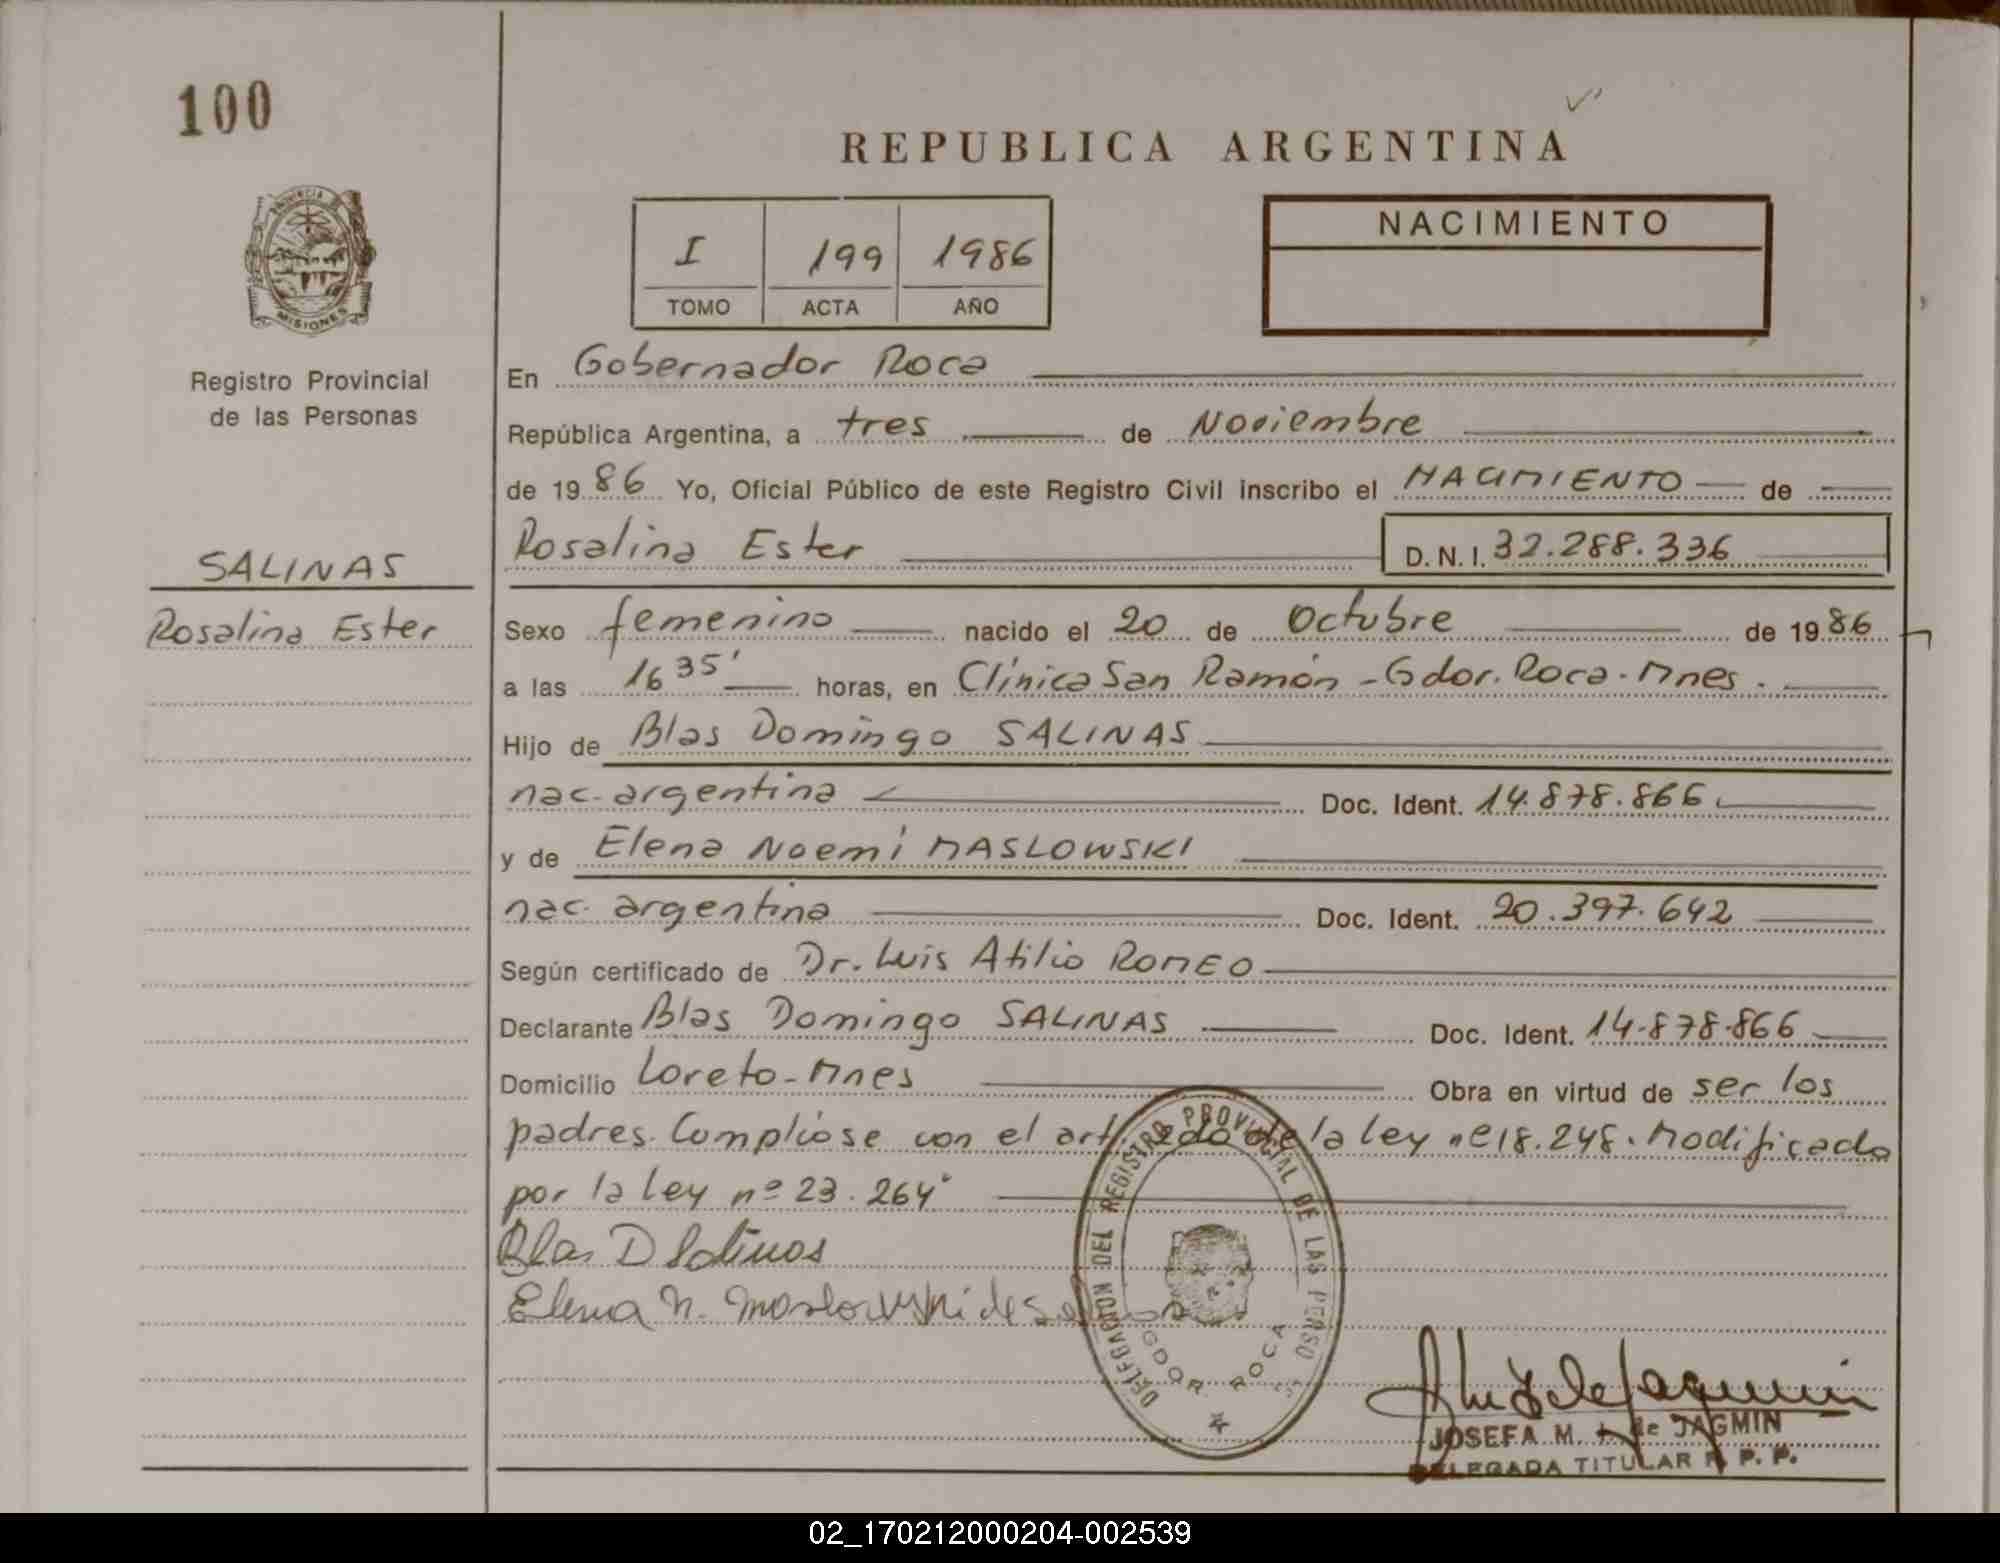 100
PROVINCIA DE
MISIONES
Registro Provincial
de las Personas
SALINAS
Rosalina Ester
REPUBLICA ARGENTINA
I 199 1986
TOMO ACTA AÑO
NACIMIENTO
En Gobernador Roca
República Argentina, a tres de Noviembre
de 1986 Yo, Oficial Público de este Registro Civil inscribo el NACIMIENTO de
Rosalina Ester D.N.I. 32.288.336
Sexo femenino nacido el 20 de Octubre de 1986
a las 16 35' horas, en Clínica San Ramón - Gdor. Roca - Mnes.
Hijo de Blas Domingo SALINAS
nac. argentina Doc. Ident. 14.878.866
y de Elena Noemí MASLOWSKI
nac. argentina Doc. Ident. 20.397.642
Según certificado de Dr. Luis Atilio ROMEO
Declarante Blas Domingo SALINAS Doc. Ident. 14.878.866
Domicilio Loreto - Mnes Obra en virtud de ser los
padres. Complióse con el art. 2do de la ley nº 18.248. Modificada
por la ley nº 23.264
Blas D Salinas
Elena N. Maslowski de
DELEGACION DEL REGISTRO PROVINCIAL DE LAS PERSO
GDOR. ROCA
JOSEFA M. de JAGMIN
DELEGADA TITULAR R. P. P.
02_170212000204-002539